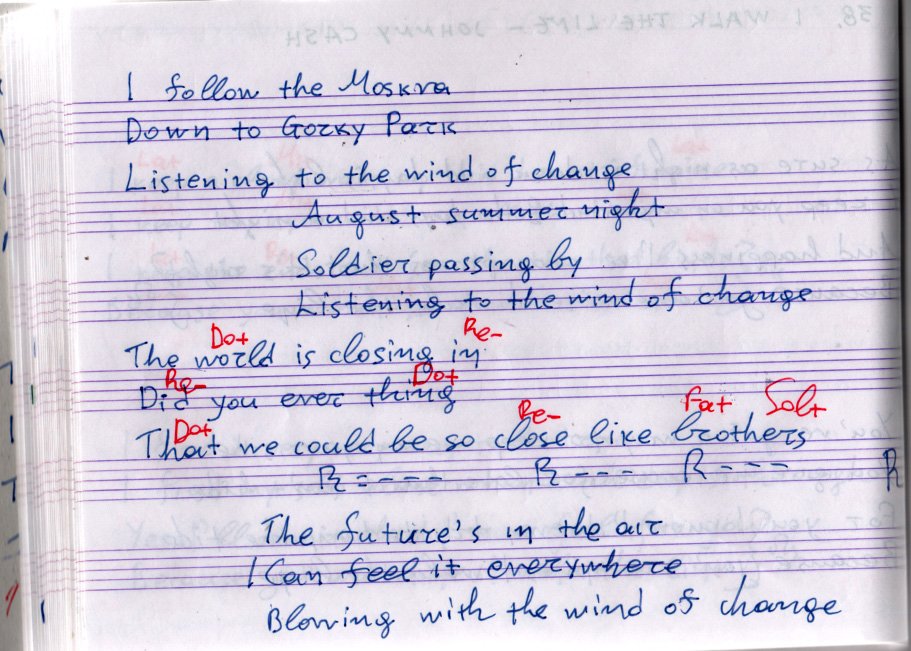 I follow the Moskva
Down to Gorky Park
Listening to the wind of change
August summer night
Soldier passing by
Listening to the wind of change
Do+ Re-
The world is closing in
Re- Do+
Did you ever thing
Do+ Re- Fa+ Sol+
That we could be so close like brothers
R = - - - - R - - - R - - - R
The future's in the air
I Can feel it everywhere
Blowing with the wind of change